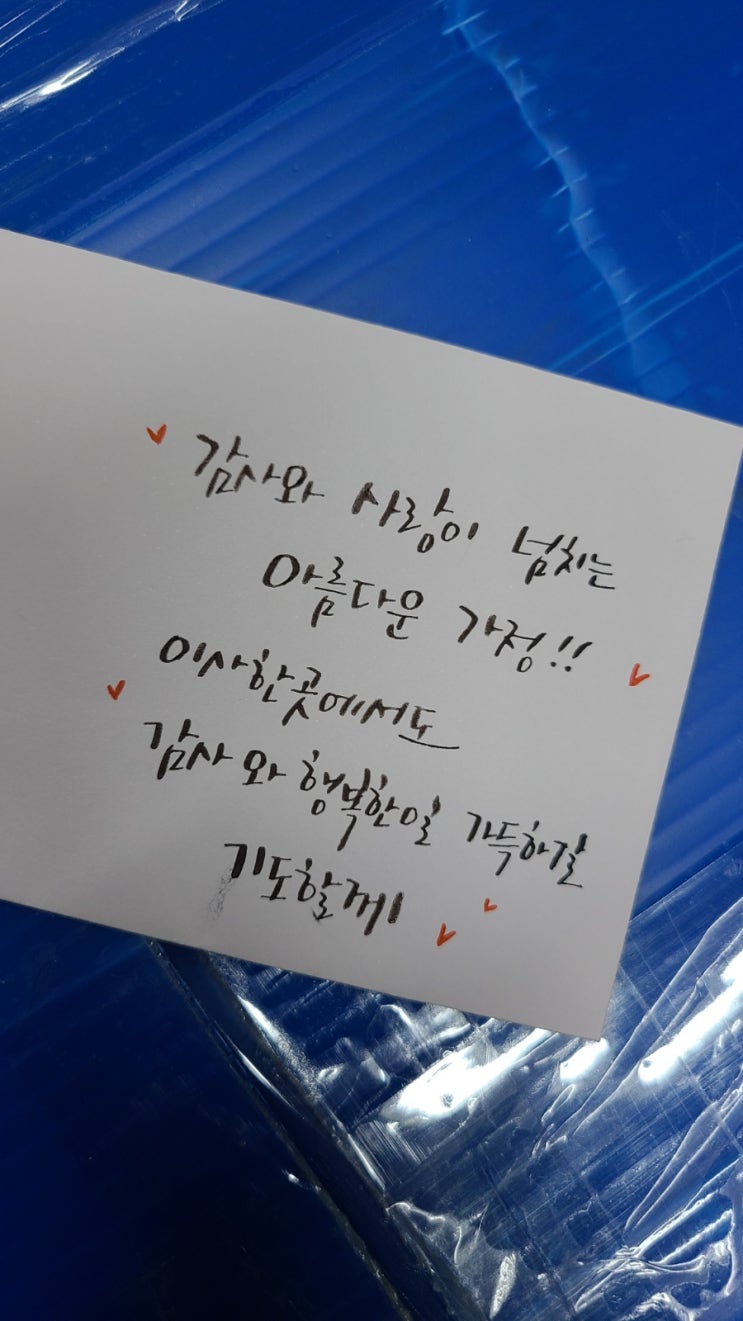 감사와 사랑이 넘치는
아름다운 가정!!
이사한곳에서도
감사와 행복한일 가득하길
기도할께